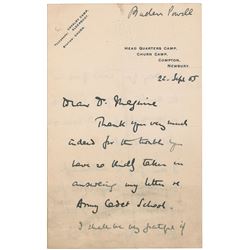 Baden Powell
HEAD QUARTERS CAMP,
CHURN CAMP,
COMPTON,
NEWBURY.
22. Sept 05
Dear Dr. Maguire
Thank you very much
indeed for the trouble you
have so kindly taken in
answering my letter re
Army Cadet School.
I shall be very grateful if